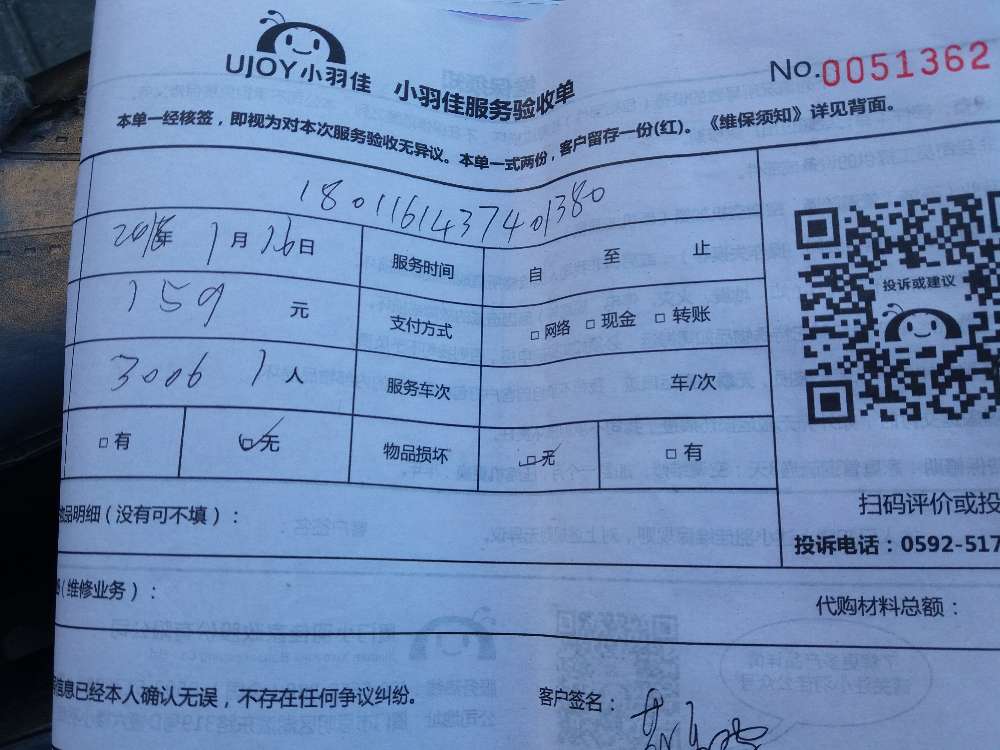 UJOY小羽佳 小羽佳服务验收单 No.0051362
本单一经核签，即视为对本次服务验收无异议。本单一式两份，客户留存一份(红)。《维保须知》详见背面。
1801161437401380
2018年 1月16日 服务时间 自 至 止
159 元 支付方式 □网络 □现金 □转账
3006 1人 服务车次 车/次
□有 ☑无 物品损坏 ☑无 □有
投诉或建议
扫码评价或投
品明细（没有可不填）：
投诉电话：0592-517
（维修业务）：
代购材料总额：
信息已经本人确认无误，不存在任何争议纠纷。 客户签名：